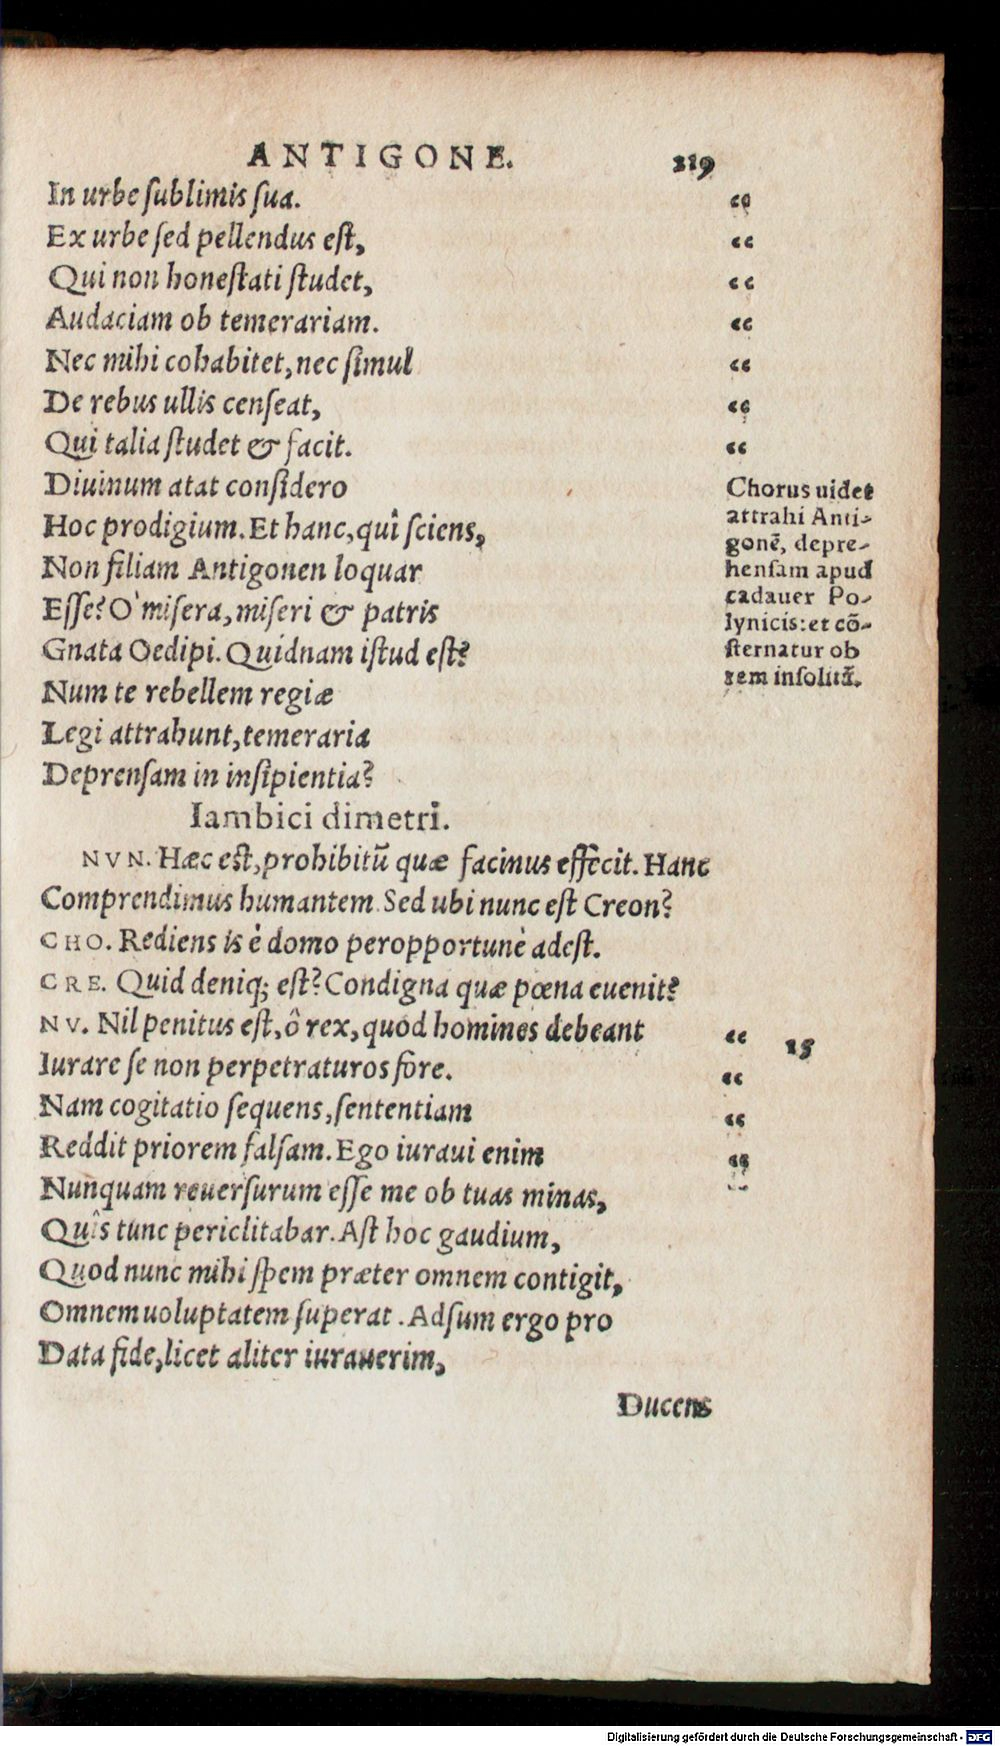 ANTIGONE. 219
In urbe ſublimis ſua. “
Ex urbe ſed pellendus eſt, “
Qui non honeſtati ſtudet, “
Audaciam ob temerariam. “
Nec mihi cohabitet, nec ſimul “
De rebus ullis cenſeat, “
Qui talia ſtudet & facit. “
Diuinum atat conſidero
Hoc prodigium. Et hanc, quî ſciens,
Non filiam Antigonen loquar
Eſſe? O` miſera, miſeri & patris
Gnata Oedipi. Quidnam iſtud eſt?
Num te rebellem regiæ
Legi attrahunt, temeraria
Deprenſam in inſipientia?
Chorus uidet
attrahi Anti-
gonẽ, depre-
henſam apud
cadauer Po-
lynicis: et cõ-
ſternatur ob
rem inſolitã.
Iambici dimetri.
NVN. Hæc eſt, prohibitũ quæ facinus effecit. Hanc
Comprendimus humantem. Sed ubi nunc eſt Creon?
CHO. Rediens is è domo peropportunè adeſt.
CRE. Quid deniq; eſt? Condigna quæ pœna euenit?
NV. Nil penitus eſt, ô rex, quod homines debeant “ 15
Iurare ſe non perpetraturos fore. “
Nam cogitatio ſequens, ſententiam “
Reddit priorem falſam. Ego iuraui enim “
Nunquam reuerſurum eſſe me ob tuas minas,
Quîs tunc periclitabar. Aſt hoc gaudium,
Quod nunc mihi ſpem præter omnem contigit,
Omnem uoluptatem ſuperat. Adſum ergo pro
Data fide, licet aliter iurauerim,
Ducens
Digitalisierung gefördert durch die Deutsche Forschungsgemeinschaft - DFG